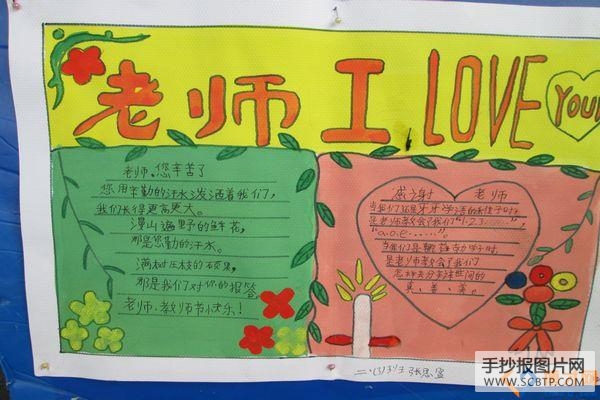 老师 I LOVE YOU
老师,您辛苦了
您用辛勤的汗水浇洒着我们,
我们长得更高更大。
漫山遍野的鲜花,
那是您勤的汗水。
满树压枝的硕果,
那是我们对你的报答
老师,教师节快乐!
感谢 老师
当我们还是牙牙学语的
是老师教会了我们"1.2.3
"a.o.e……"。
当我们是
是老师教会了我们
怎样去分辛注世间的
真、善、美。
二.(3)班 张思
手抄报图片网
WWW.SCBTP.COM